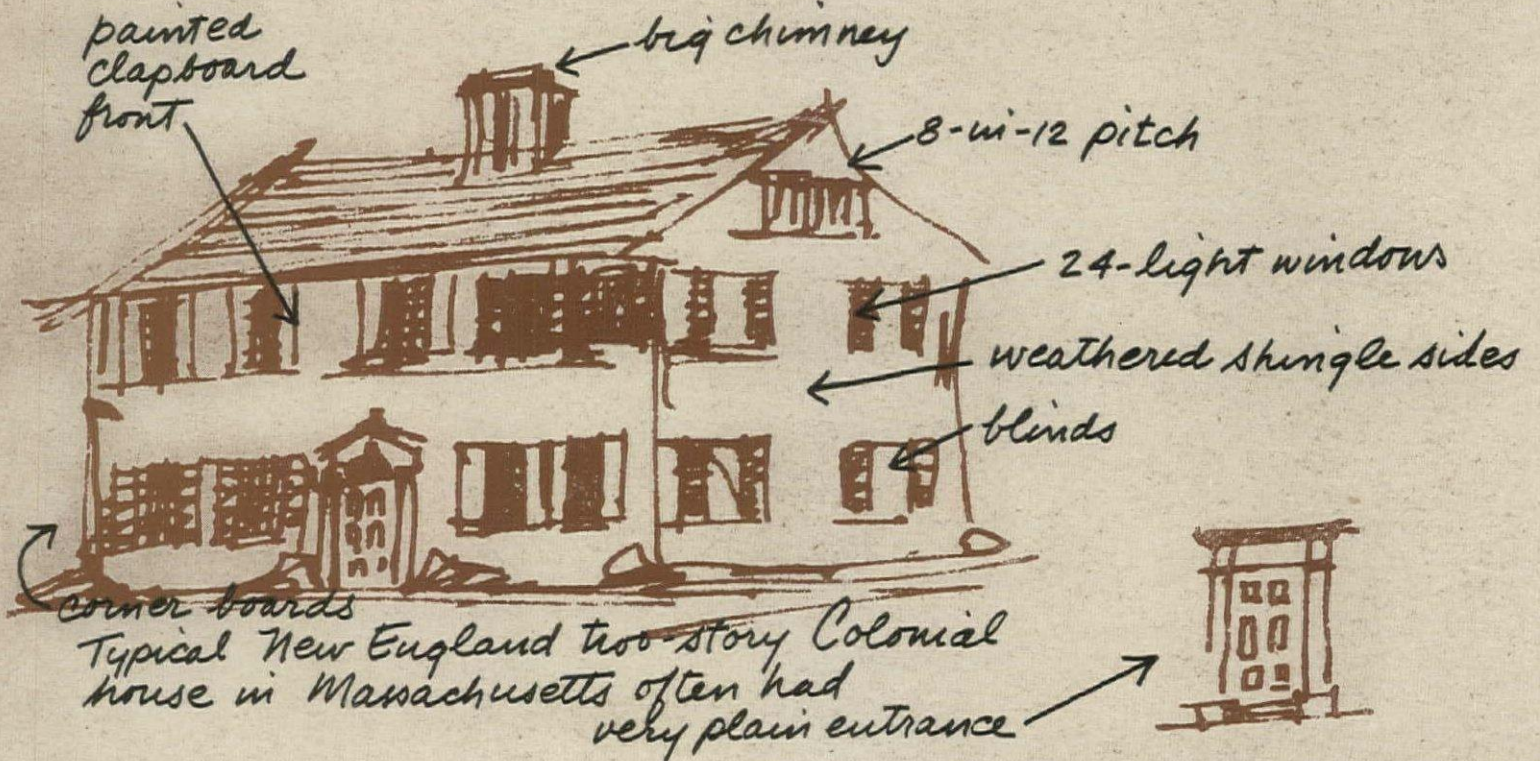 painted
clapboard
front
big chimney
8-in-12 pitch
24-light windows
weathered shingle sides
blinds
corner boards
Typical New England two-story Colonial
house in Massachusetts often had
very plain entrance